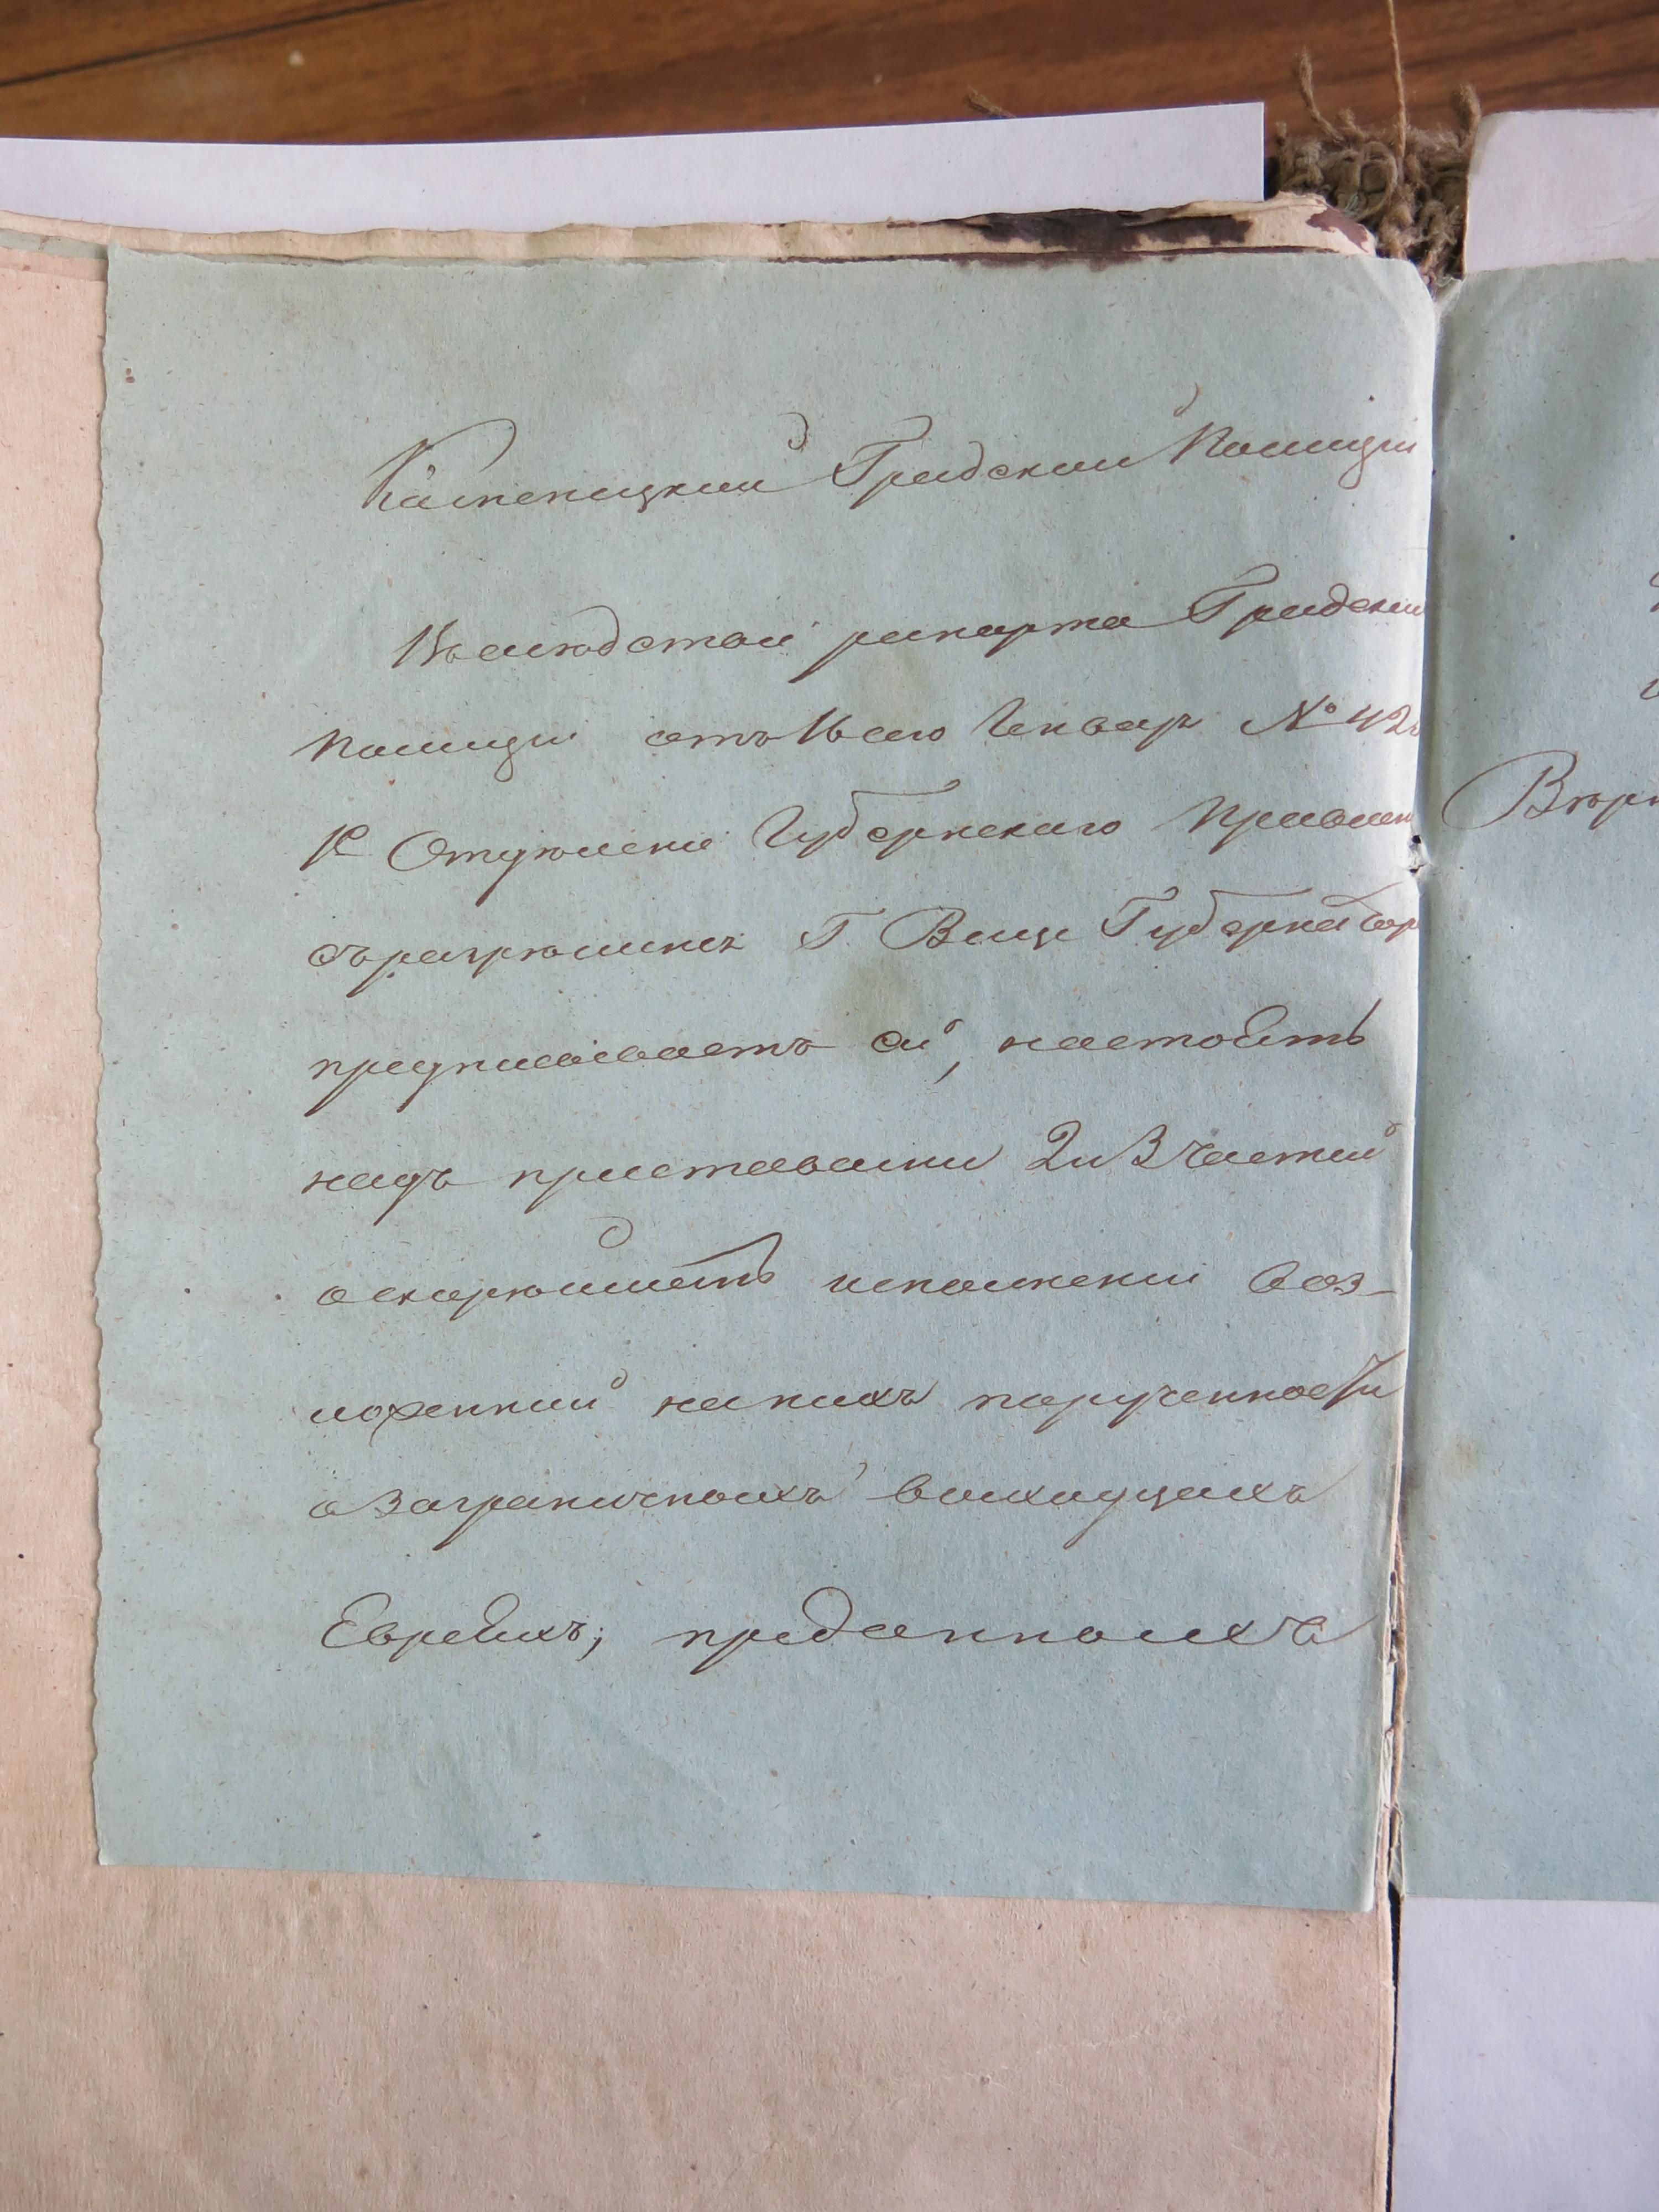 Каменецкой Градской Полиции
Въ следствіи рапорта Градской
Полиции отъ 16 сего Генваря № 42
1е Отделеніе Губернскаго Правлен
съ разрешенія Г. Вице Губернатор
предписываетъ ей, настоять
надъ приставами 2 и 3 частей
о скорейшемъ исполненіи воз-
ложенной на нихъ порученности
о заграничныхъ выходцахъ
Евреяхъ, преданныхъ
Верн